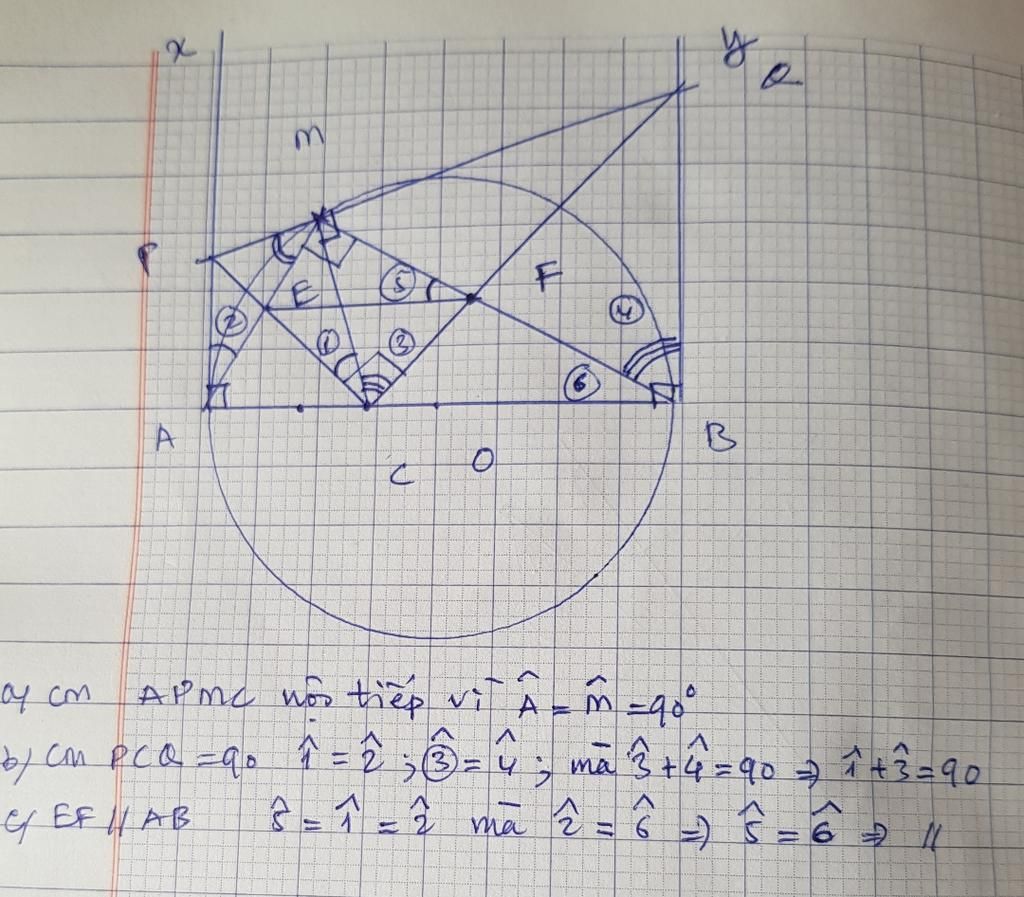 x
y
Q
M
P
E
⑤
F
②
①
③
④
⑥
A
B
C
O
a) CM APMC nội tiếp vì Â = M̂ = 90°
b) CM PCQ = 90 1̂ = 2̂ ; 3̂ = 4̂ ; mà 3̂ + 4̂ = 90 ⇒ 1̂ + 3̂ = 90
c) EF // AB 5̂ = 1̂ = 2̂ mà 2̂ = 6̂ ⇒ 5̂ = 6̂ ⇒ //